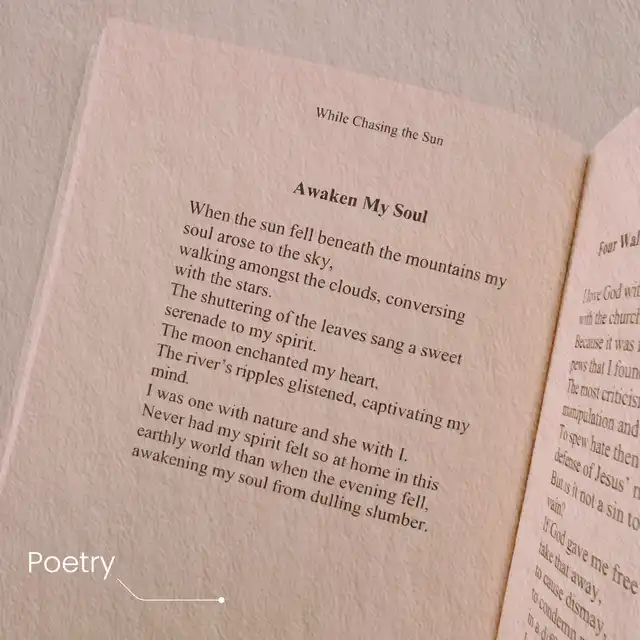 While Chasing the Sun
Awaken My Soul
When the sun fell beneath the mountains my
soul arose to the sky,
walking amongst the clouds, conversing
with the stars.
The shuttering of the leaves sang a sweet
serenade to my spirit.
The moon enchanted my heart,
The river's ripples glistened, captivating my
mind.
I was one with nature and she with I.
Never had my spirit felt so at home in this
earthly world than when the evening fell,
awakening my soul from dulling slumber.
Four
I love God
with the church
Because it was
pews that I
The most
manipulation and
To spew hate then
defense of Jesus'
But is it not a sin to
vain?
If God gave me free
take that away,
to cause dismay,
to condemn
in a
Poetry